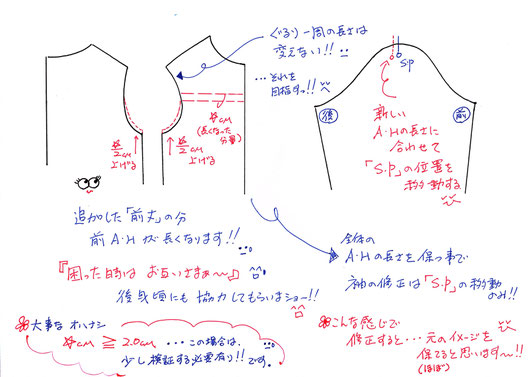 ぐるり一周の長さは
変えない!!
…それを
目指すっ!!
☆cm
(長くなった
分量)
☆/2cm
上げる
☆/2cm
上げる
S.P
後
前
新しい
A・Hの長さに
合わせて
「S.P」の位置を
移動する
追加した「前丈」の分
前A・Hが長くなります!!
『困った時は お互いさまぁ〜』
後身頃にも 協力してもらいまショー!!
全体の
A・Hの長さを保つ事で
袖の修正は「S.P」の移動
のみ!!
大事な オハナシ
☆cm ≧ 2.0cm …この場合は、
少し検証する必要有り!!です。
こんな感じで
修正すると…元のイメージを
保てると思いま〜す!!
(ほぼ)